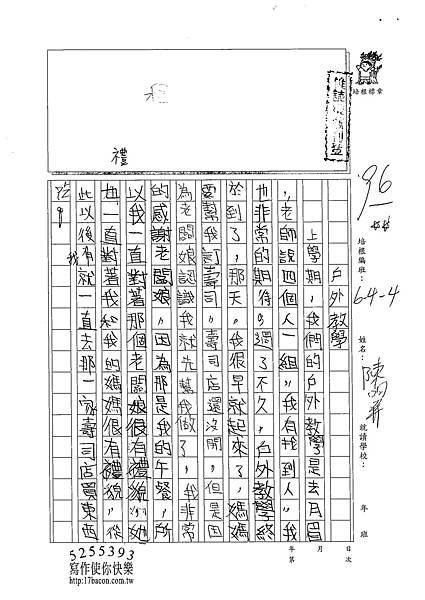 禮
培根標章
96
培根編班：
64-4
姓名：
就讀學校：
年 班
戶外教學
上學期，我們的戶外教學是去月眉
，老師說四個人一組，我有找到人，我
也非常的期待。過了不久，戶外教學終
於到了，那天，我很早就起來了，媽媽
要幫我訂壽司，壽司店還沒開，但是因
為老闆娘認識我就先幫我做了，我非常
的感謝老闆娘，因為那是我的午餐，所
以我一直對著那個老闆娘很有禮貌，她
也一直對著我和我的媽媽很有禮貌，從
此以後我有就一直去那一家壽司店買東西
年 月 日
第 次
5255393
寫作使你快樂
http://17bacon.com.tw